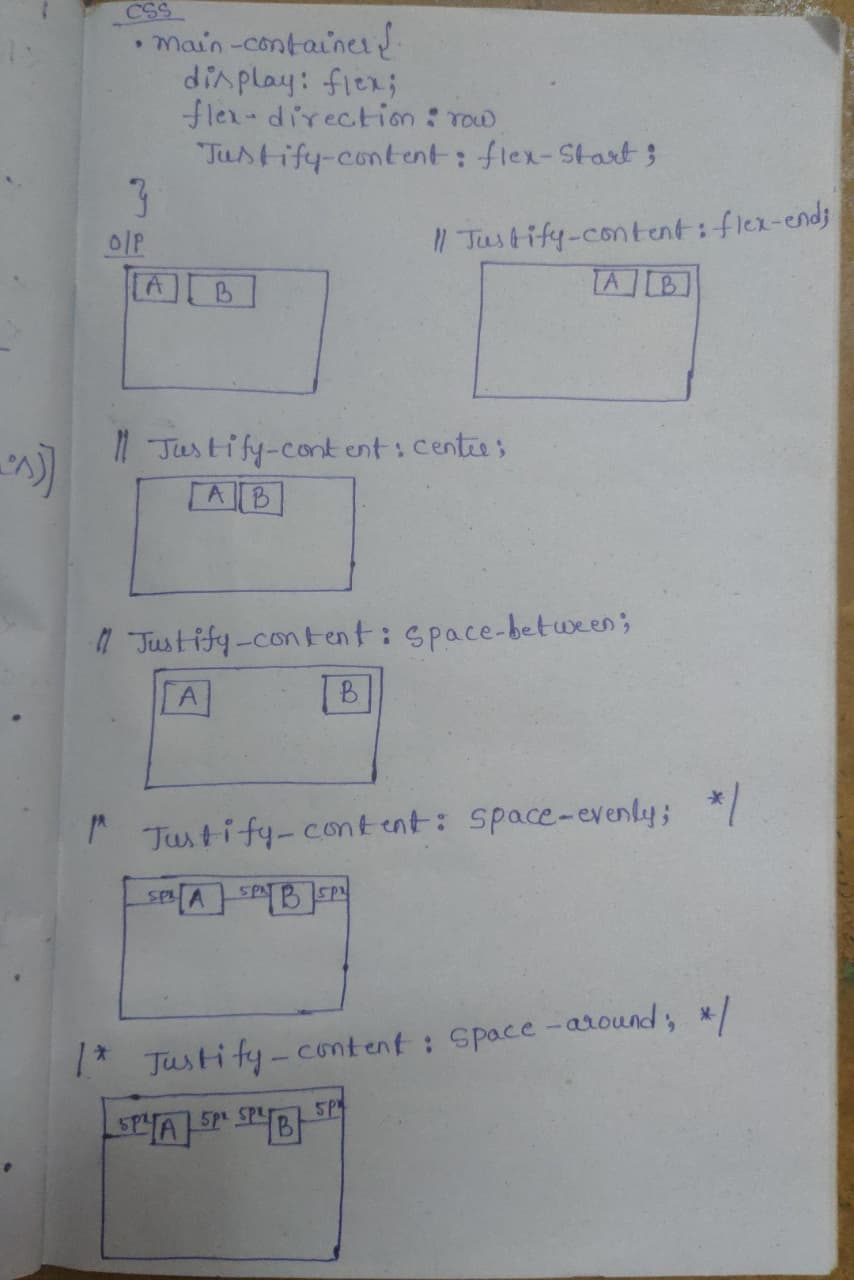 CSS
. main-container{
display: flex;
flex-direction: row
Justify-content: flex-start;
}
O/P
// Justify-content: flex-end;
A B
A B
// Justify-content: centre;
A B
// Justify-content: space-between;
A B
/* Justify-content: space-evenly; */
5px A 5px B 5px
/* Justify-content: space-around; */
5px A 5px 5px B 5px